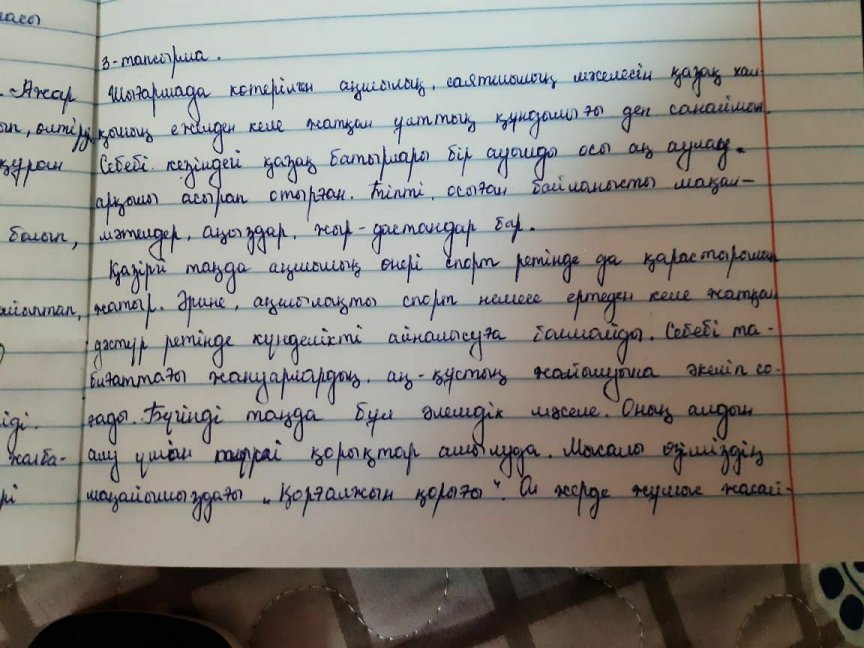 насы
3-тапсырма.
Ажар Шығармада көтерілген аңшылық, саятшылық мәселесін қазақ хал-
ып, өлтіру қының ежелден келе жатқан ұлттық құндылығы деп санаймын.
құрған Себебі кезіндегі қазақ батырлары бір ауылды осы аң аулау
арқылы асырап отырған. Тіпті, осыған байланысты мақал-
болып, мәтелдер, аңыздар, жыр-дастандар бар.
Қазіргі таңда аңшылық өнері спорт ретінде да қарастырылып
жатыр. Әрине, аңшылақты спорт немесе ертеден келе жатқан
дәстүр ретінде күнделікті айналысуға болмайды. Себебі та-
биғаттағы жануарлардың, аң-құстың жойылуына әкеліп со-
іді. ғады. Бүгінді таңда бұл әлемдік мәселе. Оның алдын
жалба- алу үшін қорықтар ашылуда. Мысалы өзіміздің
рі маңайымыздағы „Қорғалжын қорығы". Ол жерде жұмыс жасай-